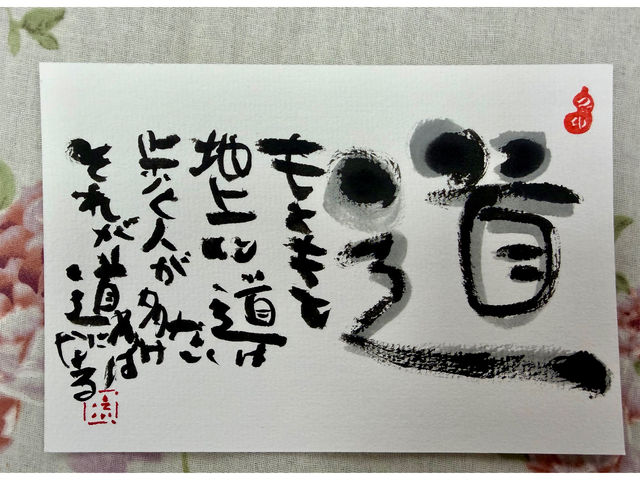 道
もともと
地上に道はない
歩く人が多ければ
それが道になる